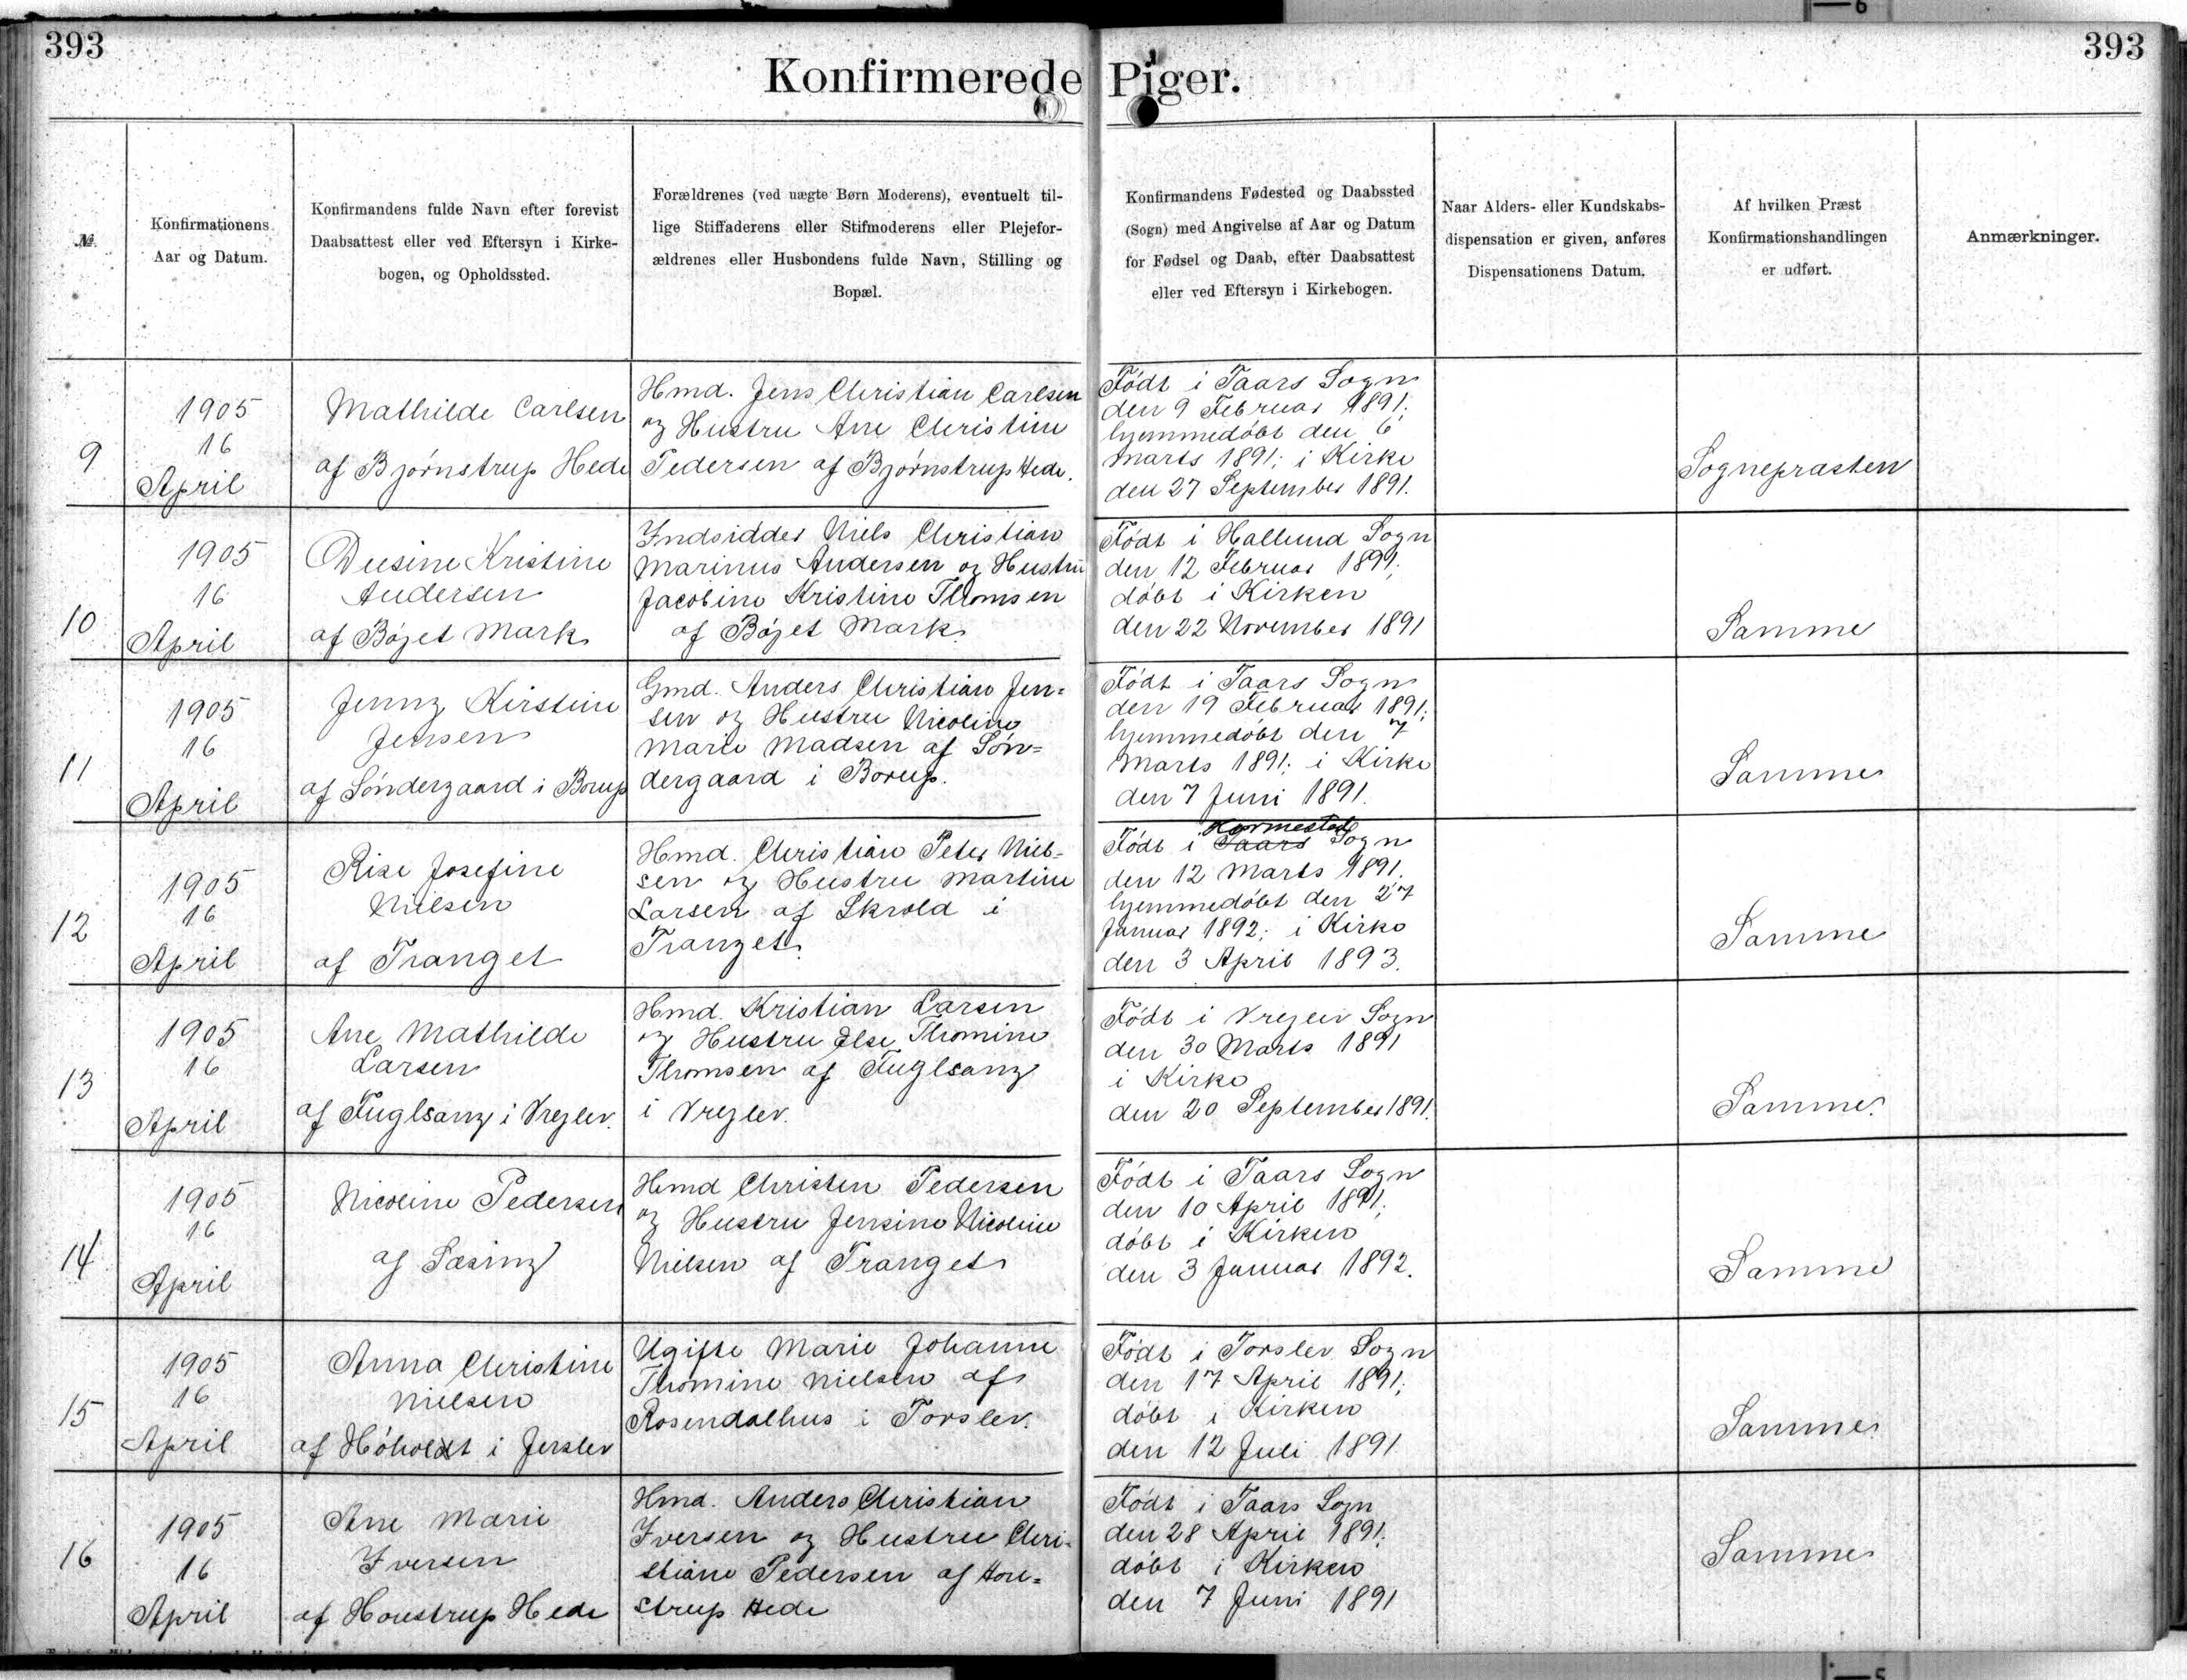 393
393
Konfirmerede Piger.
№
Konfirmationens
Aar og Datum.
Konfirmandens fulde Navn efter forevist
Daabsattest eller ved Eftersyn i Kirke-
bogen, og Opholdssted.
Forældrenes (ved uægte Børn Moderens), eventuelt til-
lige Stiffaderens eller Stifmoderens eller Plejefor-
ældrenes eller Husbondens fulde Navn, Stilling og
Bopæl.
Konfirmandens Fødested og Daabssted
(Sogn) med Angivelse af Aar og Datum
for Fødsel og Daab, efter Daabsattest
eller ved Eftersyn i Kirkebogen.
Naar Alders- eller Kundskabs-
dispensation er given, anføres
Dispensationens Datum.
Af hvilken Præst
Konfirmationshandlingen
er udført.
Anmærkninger.
9
1905
16
April
Mathilde Carlsen
af Bjørnstrup Hede
Hmd. Jens Christian Carlsen
og Hustru Ane Christine
Pedersen af Bjørnstrup Hede.
Født i Taars Sogn
den 9 Februar 1891;
hjemmedøbt den 6
Marts 1891; i Kirke
den 27 September 1891.
Sognepræsten
10
1905
16
April
Dusine Kristine
Andersen
af Bøjet Mark
Indsidder Niels Christian
Marinus Andersen og Hustru
Jacobine Kristine Thomsen
af Bøjet Mark.
Født i Hallund Sogn
den 12 Februar 1891;
døbt i Kirken
den 22 November 1891
Samme
11
1905
16
April
Jenny Kirstine
Jensen
af Søndergaard i Borup
Gmd. Anders Christian Jen=
sen og Hustru Nicoline
Marie Madsen af Søn=
dergaard i Borup.
Født i Taars Sogn
den 19 Februar 1891;
hjemmedøbt den 7
Marts 1891; i Kirke
den 7 Juni 1891.
Samme
12
1905
16
April
Rise Josefine
Nielsen
af Tranget
Hmd. Christian Peter Niel=
sen og Hustru Martine
Larsen af Skrold i
Tranget.
Kormested
Født i Taars Sogn
den 12 Marts 1891.
hjemmedøbt den 27
Januar 1892; i Kirke
den 3 April 1893.
Samme
13
1905
16
April
Ane Mathilde
Larsen
af Fuglsang i Vrejlev.
Hmd. Kristian Larsen
og Hustru Else Thomine
Thomsen af Fuglsang
i Vrejlev.
Født i Vrejlev Sogn
den 30 Marts 1891
i Kirke
den 20 September 1891.
Samme.
14
1905
16
April
Nicoline Pedersen
af Sæsing
Hmd Christen Pedersen
og Hustru Jensine Nicoline
Nielsen af Tranget
Født i Taars Sogn
den 10 April 1891;
døbt i Kirken
den 3 Januar 1892.
Samme
15
1905
16
April
Anna Christine
Nielsen
af Høholdt i Jerslev
Ugifte Marie Johanne
Thomine Nielsen af
Rosendalhus i Torslev.
Født i Torslev Sogn
den 17 April 1891;
døbt i Kirken
den 12 Juli 1891
Samme
16
1905
16
April
Ane Marie
Iversen
af Houstrup Hede
Hmd. Anders Christian
Iversen og Hustru Chri=
stiane Pedersen af Hou=
strup Hede
Født i Taars Sogn
den 28 April 1891;
døbt i Kirken
den 7 Juni 1891
Samme